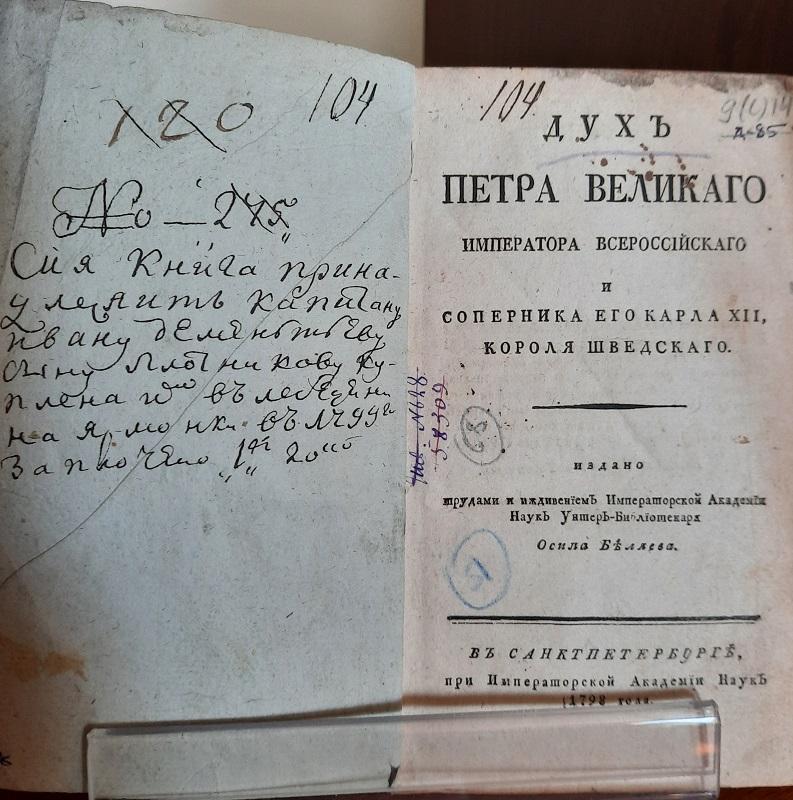 120
104
No — 245
Сия Книга прина-
длежитъ капитану
Ивану Дементьеву
сыну Плотникову ку-
плена въ лебедени
на ярмонки въ
Заплочено
104
9(с)14
Д-85
ДУХЪ
ПЕТРА ВЕЛИКАГО
ИМПЕРАТОРА ВСЕРОССІЙСКАГО
И
СОПЕРНИКА ЕГО КАРЛА XII,
КОРОЛЯ ШВЕДСКАГО.
58309
издано
трудами и иждивеніемъ Императорской Академіи
Наукъ Унтеръ-Библіотекаря
Осипа Бѣляева.
ВЪ САНКТПЕТЕРБУРГѢ,
при Императорской Академіи Наукъ
1798 года.